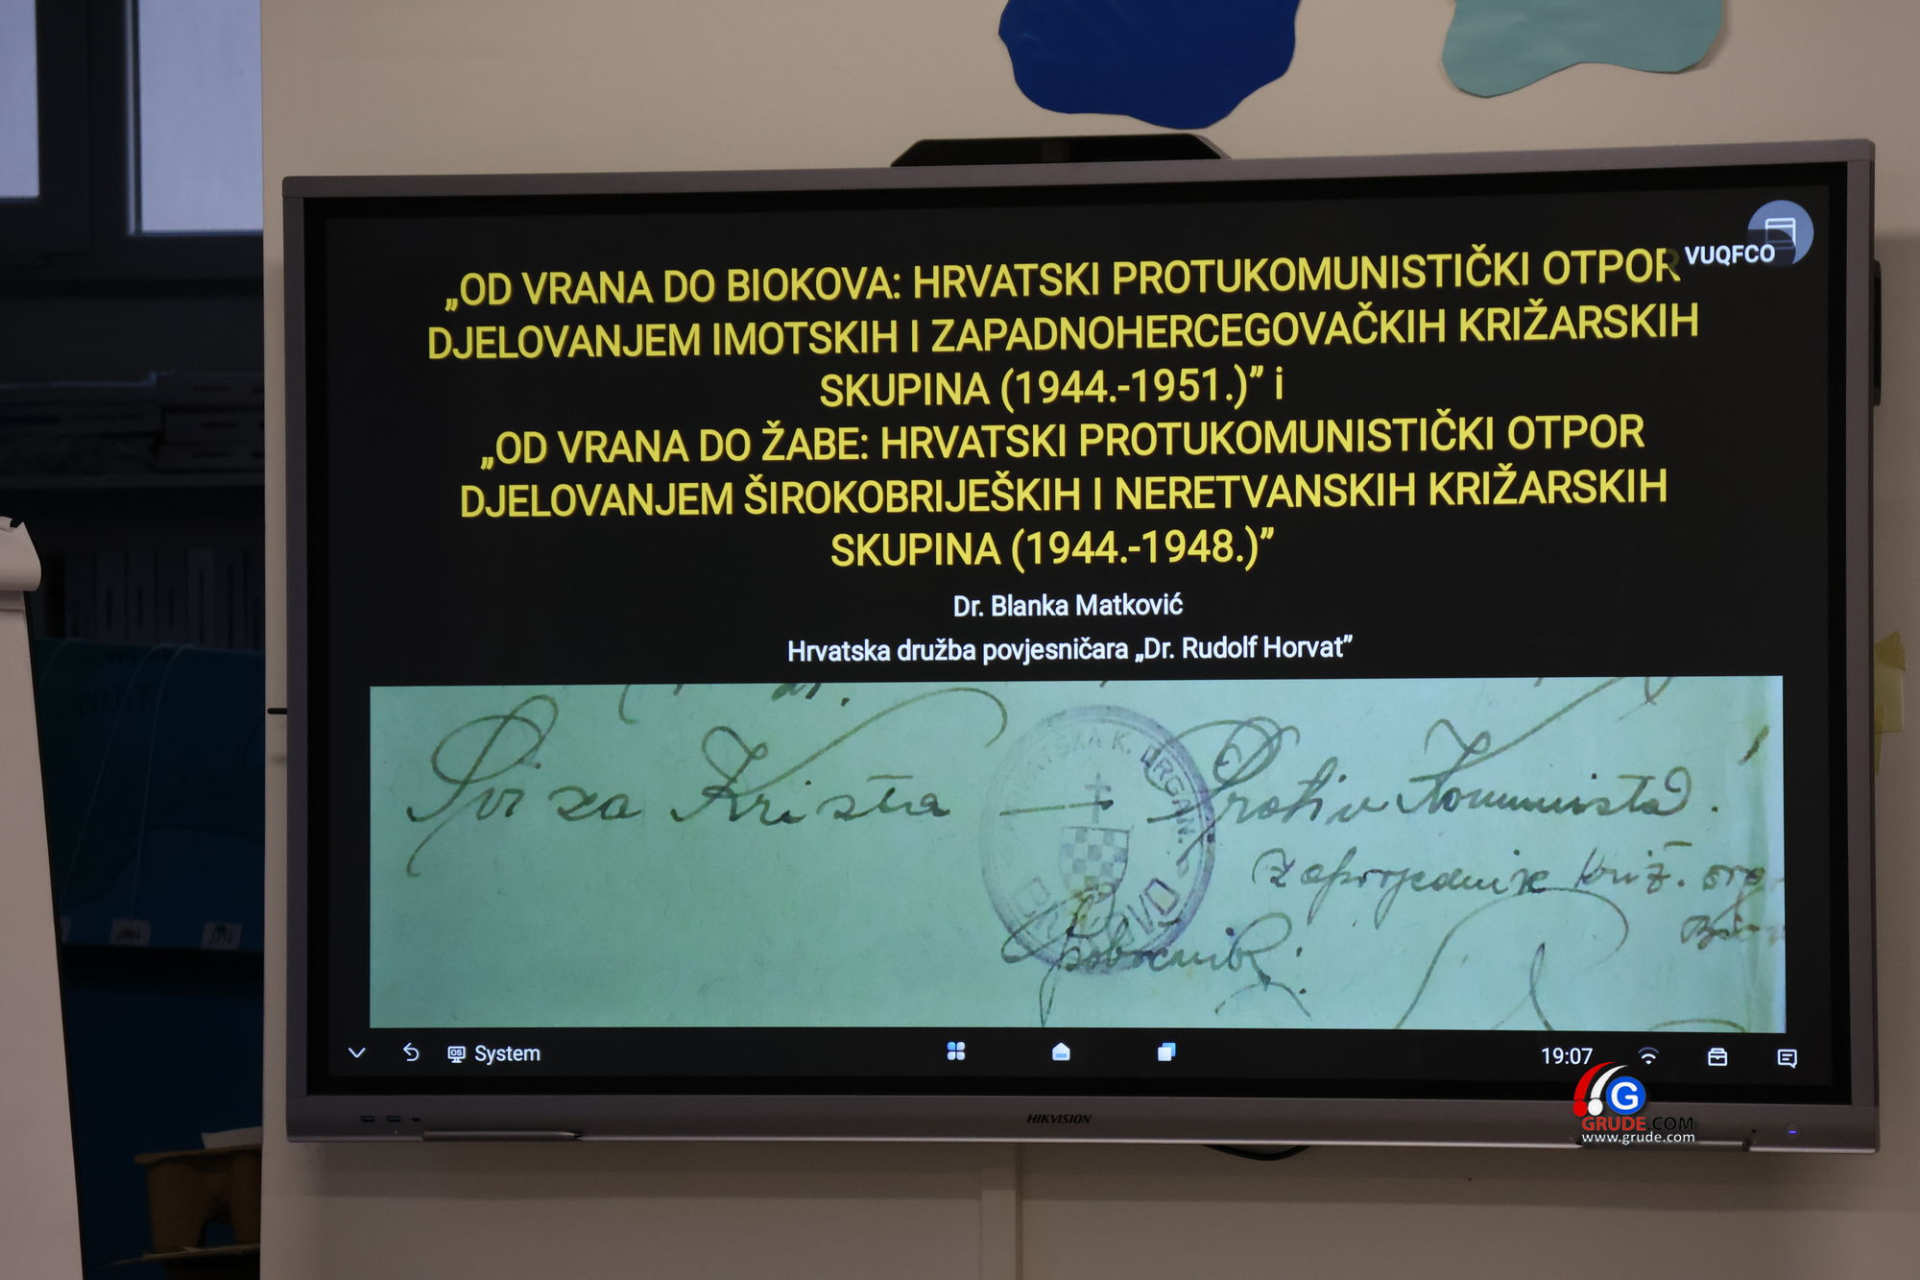 VUQFCO
„OD VRANA DO BIOKOVA: HRVATSKI PROTUKOMUNISTIČKI OTPOR
DJELOVANJEM IMOTSKIH I ZAPADNOHERCEGOVAČKIH KRIŽARSKIH
SKUPINA (1944.-1951.)” i
„OD VRANA DO ŽABE: HRVATSKI PROTUKOMUNISTIČKI OTPOR
DJELOVANJEM ŠIROKOBRIJEŠKIH I NERETVANSKIH KRIŽARSKIH
SKUPINA (1944.-1948.)”
Dr. Blanka Matković
Hrvatska družba povjesničara „Dr. Rudolf Horvat”
Svi za Krista — Protiv Komunista.
HRVATSKA K. ORGAN.
Zapovjednik križ.
Pobočnik
System
19:07
HIKVISION
G
GRUDE.COM
www.grude.com